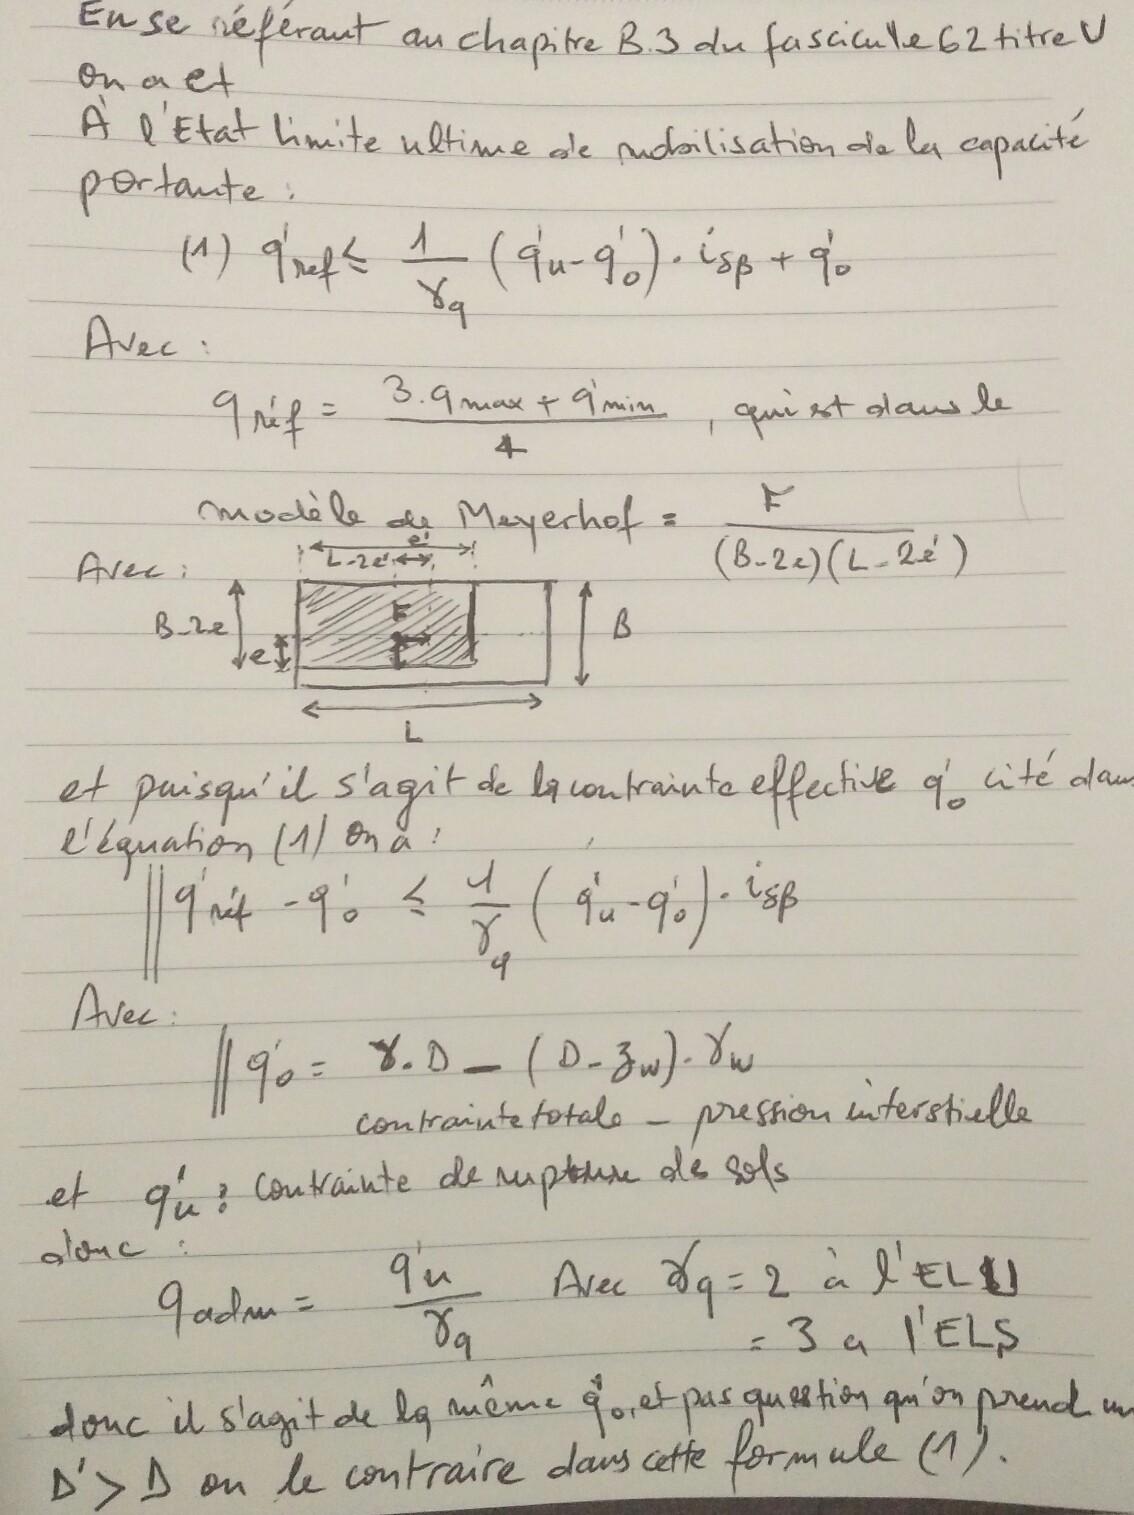 En se référant au chapitre B.3 du fascicule 62 titre V
on a et
À l'Etat limite ultime de mobilisation de la capacité
portante :
(1) q'ref ≤ 1/γq (q'u - q'o) . iδβ + q'o
Avec :
q'réf = (3.q'max + q'min)/4 , qui est dans le
modèle de Meyerhof = F/((B-2e)(L-2e'))
Avec :
L-2e' e'
B-2e e F B
L
et puisqu'il s'agit de la contrainte effective q'o cité dans
l'équation (1) on a :
|| q'réf - q'o ≤ 1/γq (q'u - q'o) . iδβ
Avec :
|| q'o = γ.D - (D - zw).γw
contrainte totale - pression interstielle
et q'u : contrainte de rupture des sols
donc :
qadm = q'u/γq Avec γq = 2 à l'ELU
= 3 a l'ELS
donc il s'agit de la même q'o, et pas question qu'on prend un
D' > D ou le contraire dans cette formule (1).